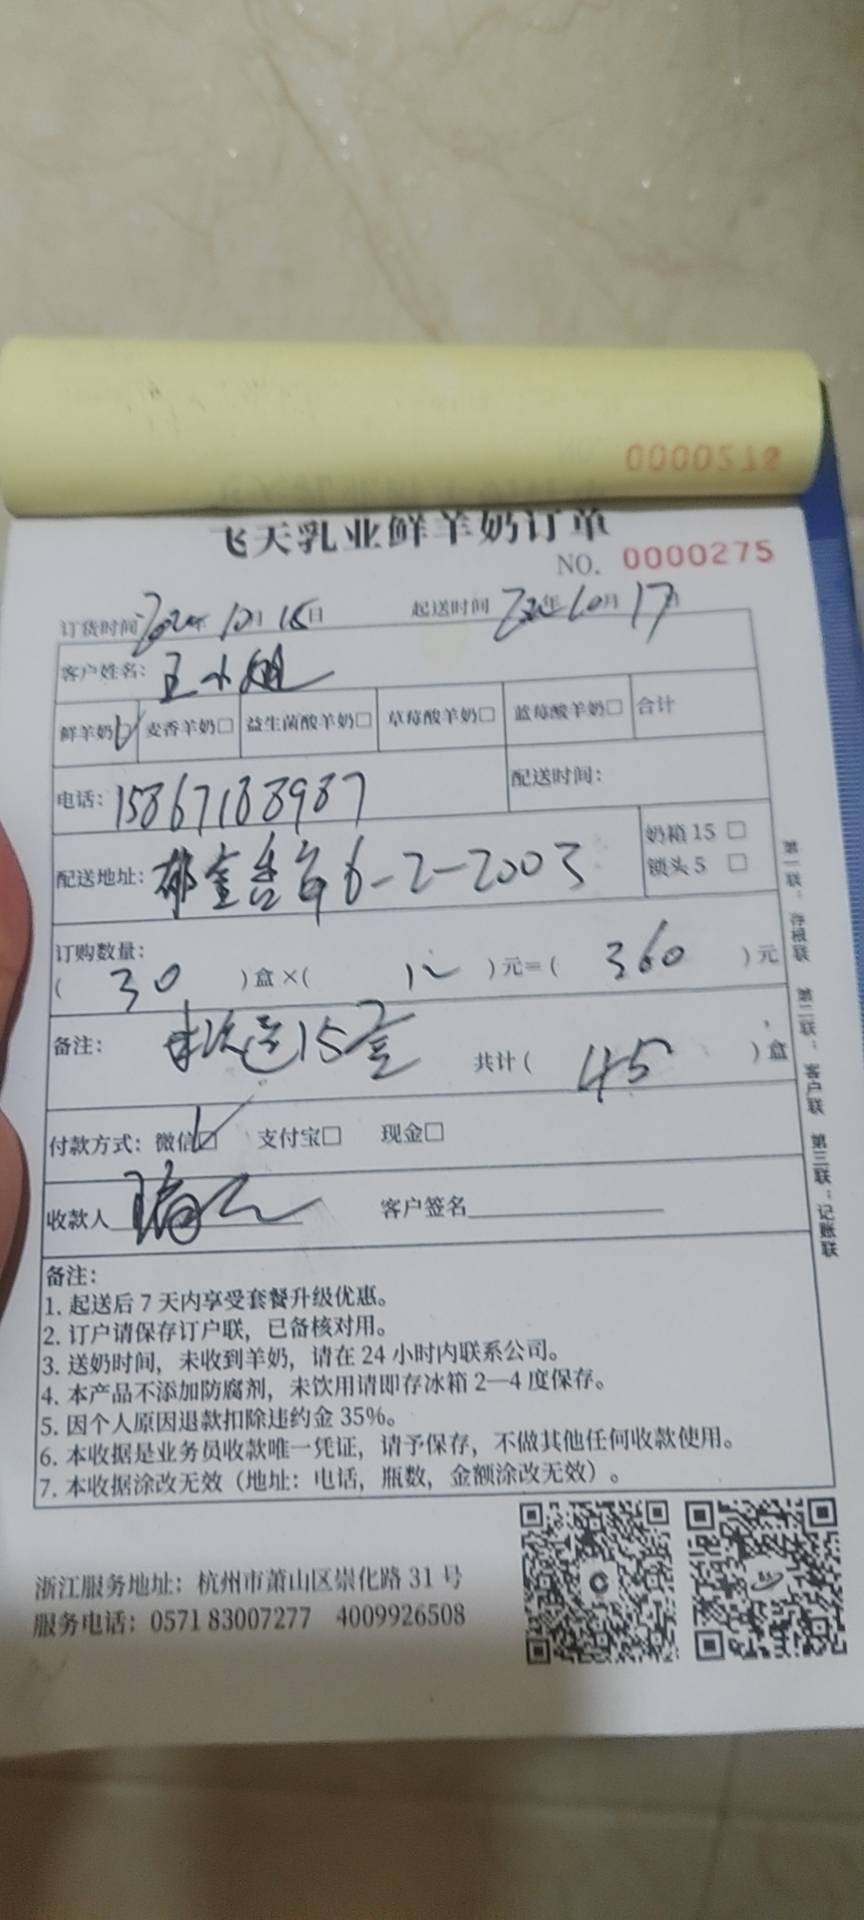 0000278
飞天乳业鲜羊奶订单
NO. 0000275
订货时间: 年10月15日 起送时间 年10月17日
客户姓名: 王小姐
鲜羊奶 麦香羊奶□ 益生菌酸羊奶□ 草莓酸羊奶□ 蓝莓酸羊奶□ 合计
电话: 15867188987 配送时间:
配送地址: 6-2-2003 奶箱 15 □
锁头 5 □
订购数量:
( 30 )盒×( 12 )元=( 360 )元
备注: 送15盒 共计( 45 )盒
付款方式: 微信☑ 支付宝□ 现金□
收款人 客户签名
备注:
1. 起送后 7 天内享受套餐升级优惠。
2. 订户请保存订户联，已备核对用。
3. 送奶时间，未收到羊奶，请在 24 小时内联系公司。
4. 本产品不添加防腐剂，未饮用请即存冰箱 2—4 度保存。
5. 因个人原因退款扣除违约金 35%。
6. 本收据是业务员收款唯一凭证，请予保存，不做其他任何收款使用。
7. 本收据涂改无效（地址：电话，瓶数，金额涂改无效）。
第一联：存根联 第二联：客户联 第三联：记账联
浙江服务地址：杭州市萧山区崇化路 31 号
服务电话：0571 83007277 4009926508